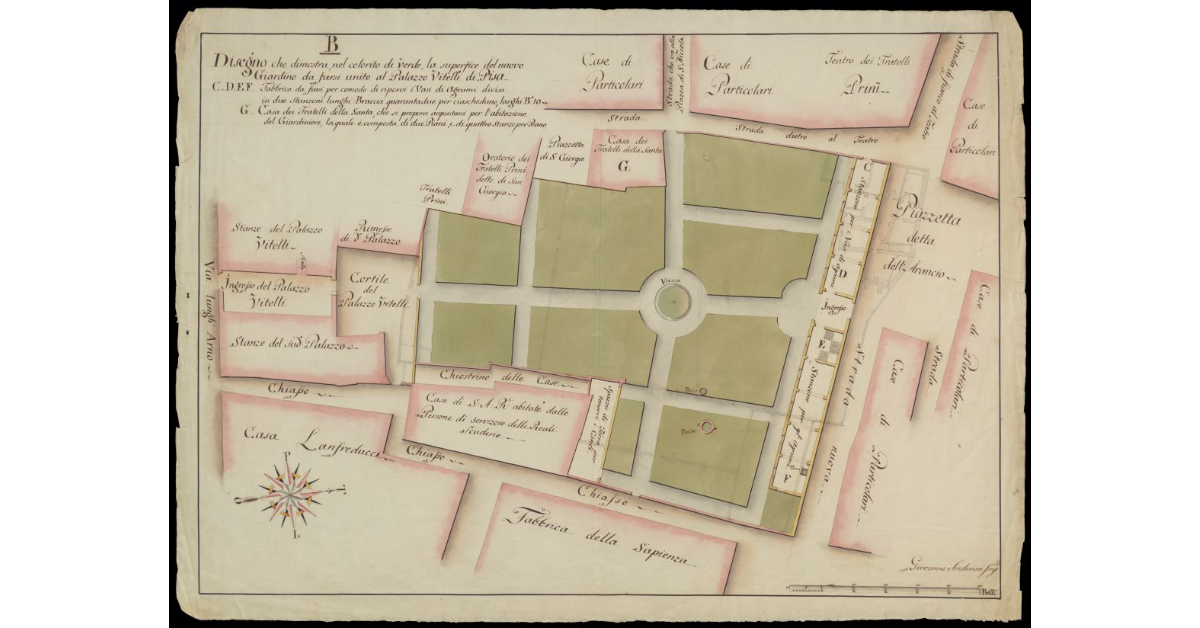 B
Disegno che dimostra, nel colorito di verde, la superfice del nuovo
Giardino da farsi unito al Palazzo Vitelli di Pisa.
C.D.E.F. Fabbrica da farsi per comodo di riporvi i Vasi di Agrumi divisa
in due Stanzoni lunghi Braccia quarantadue per ciascheduno, larghi B.
G. Casa dei Fratelli della Santa, che si propone acquistarsi per l'abitazione
del Giardiniere, la quale è composta di due Piani, e di quattro Stanze per Piano
Case di
Particolari
Strada che va alla
Piazza di S. Niccola
Case di
Particolari
Teatro dei Fratelli
Prini
Case
di
Particolari
Strada
Strada dietro al Teatro
Piazzetta
di S. Giorgio
Casa dei
Fratelli della Santa
G
Oratorio dei
Fratelli Prini,
detto di San
Giorgio
Fratelli
Prini
Stanze del Palazzo
Vitelli
Rimesse
di d.º Palazzo
Ingresso del Palazzo
Vitelli
Cortile
del
Palazzo Vitelli
Stanze del Sud.º Palazzo
Via lungh' Arno
Chiasso
Vasca
C
Stanzone per i Vasi di agrumi
D
Ingresso
E
Stanzone per gl'agrumi
F
Piazzetta
detta
dell'Arancio
Case di Particolari
Strada
Case di Particolari
Strada nuova
Chiostrino delle Case
Case di S. A. R. abitate dalle
Persone di servizio delle Reali
Scuderie
Pozzo
Casa Lanfreducci
Chiasso
Chiasso
Fabbrica della Sapienza
P
L
Giovanni Andreini